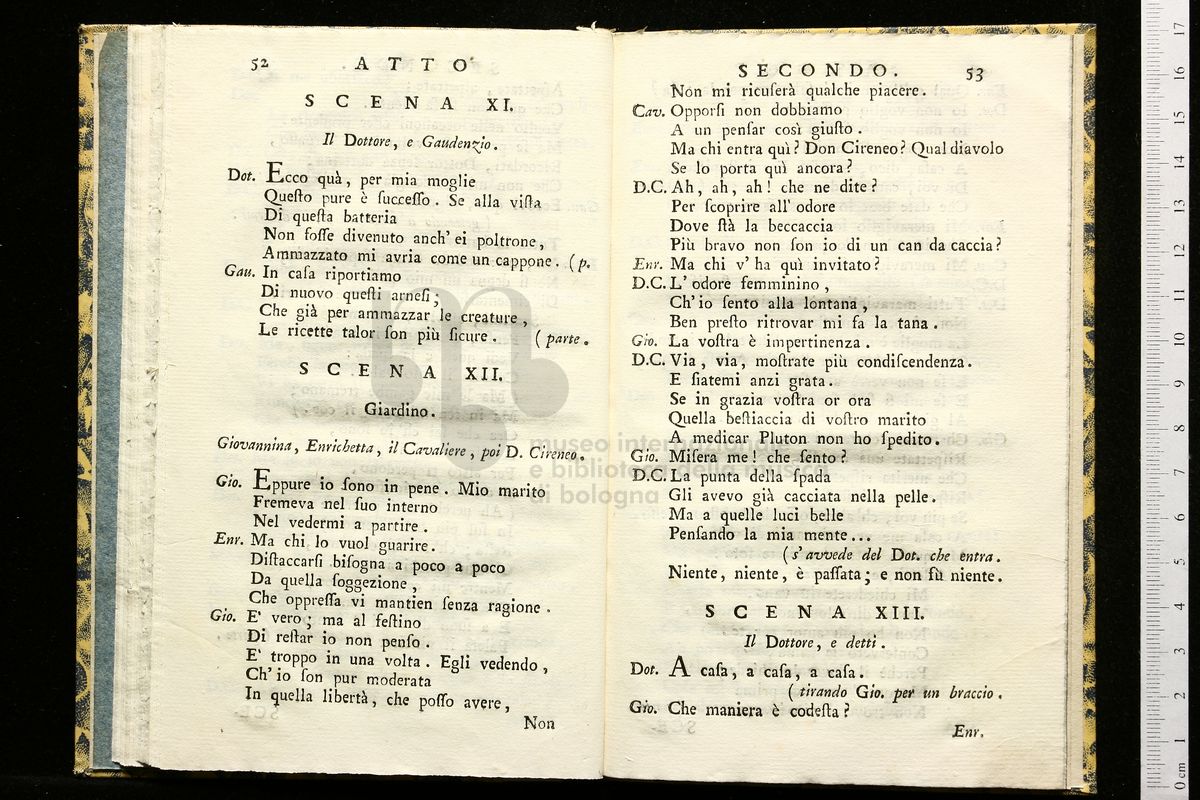 52 ATTO
SCENA XI.
Il Dottore, e Gaudenzio.
Dot. Ecco quà, per mia moglie
Queſto pure è ſucceſſo. Se alla viſta
Di queſta batteria
Non foſſe divenuto anch' ei poltrone,
Ammazzato mi avria come un cappone. (p.
Gau. In caſa riportiamo
Di nuovo queſti arneſi;
Che già per ammazzar le creature,
Le ricette talor ſon più ſicure. (parte.
SCENA XII.
Giardino.
Giovannina, Enrichetta, il Cavaliere, poi D. Cireneo.
Gio. Eppure io ſono in pene. Mio marito
Fremeva nel ſuo interno
Nel vedermi a partire.
Enr. Ma chi lo vuol guarire.
Diſtaccarſi biſogna a poco a poco
Da quella ſoggezione,
Che oppreſſa vi mantien ſenza ragione.
Gio. E' vero; ma al feſtino
Di reſtar io non penſo.
E' troppo in una volta. Egli vedendo,
Ch' io ſon pur moderata
In quella libertà, che poſſo avere,
Non
SECONDO. 53
Non mi ricuſerà qualche piacere.
Cav. Opporſi non dobbiamo
A un penſar così giuſto.
Ma chi entra quì? Don Cireneo? Qual diavolo
Se lo porta quì ancora?
D.C. Ah, ah, ah! che ne dite?
Per ſcoprire all' odore
Dove ſtà la beccaccia
Più bravo non ſon io di un can da caccia?
Enr. Ma chi v' ha quì invitato?
D.C. L' odore femminino,
Ch' io ſento alla lontana,
Ben preſto ritrovar mi fa la tana.
Gio. La voſtra è impertinenza.
D.C. Via, via, moſtrate più condiſcendenza.
E ſiatemi anzi grata.
Se in grazia voſtra or ora
Quella beſtiaccia di voſtro marito
A medicar Pluton non ho ſpedito.
Gio. Miſera me! che ſento?
D.C. La punta della ſpada
Gli avevo già cacciata nella pelle.
Ma a quelle luci belle
Penſando la mia mente...
(s' avvede del Dot. che entra.
Niente, niente, è paſſata; e non fù niente.
SCENA XIII.
Il Dottore, e detti.
Dot. A caſa, a caſa, a caſa.
(tirando Gio. per un braccio.
Gio. Che maniera è codeſta?
Enr.
museo internazionale
e biblioteca della musica
di bologna
0 cm 1 2 3 4 5 6 7 8 9 10 11 12 13 14 15 16 17